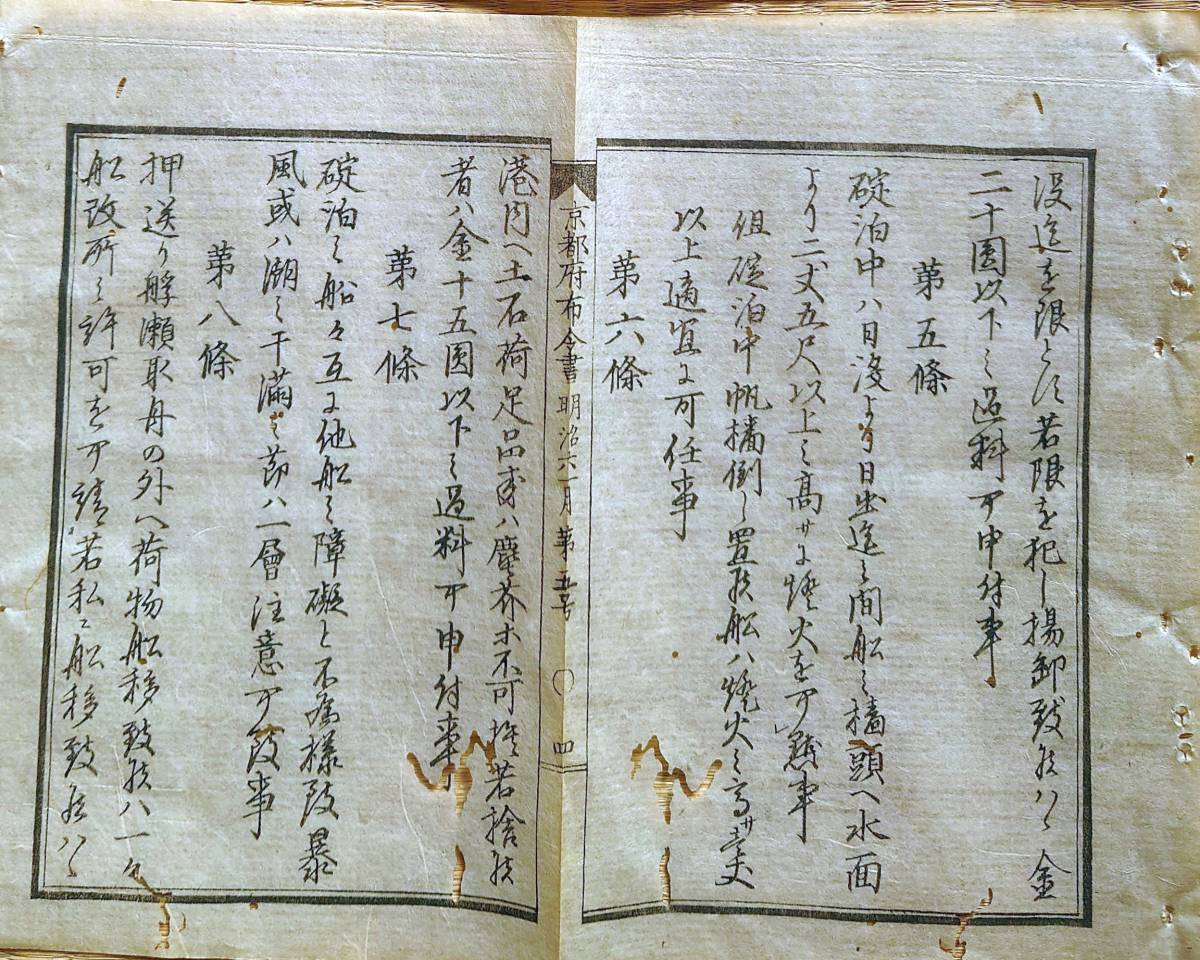 没迄を限とす若限を犯し揚卸致候ハヽ金
二十圓以下之過料可申付事
第五條
碇泊中ハ日没より日出迄之間船之檣頭ヘ水面
より二丈五尺以上之高サに燈火を可懸事
但碇泊中帆檣倒し置候船ハ燈火之高サ壹丈
以上適宜に可任事
第六條
京都府布令書 明治六一月 第五号 〇 四
港内ヘ土石荷足品或ハ塵芥ホ不可捨若捨候
者ハ金十五圓以下之過料可申付事
第七條
碇泊之船々互に他船之障礙と不爲様致暴
風或ハ潮之干滿之節ハ一層注意可致事
第八條
押送り艀瀬取舟の外ヘ荷物船移致候ハ一々
船改所之許可を可請若私ニ船移致候ハヽ